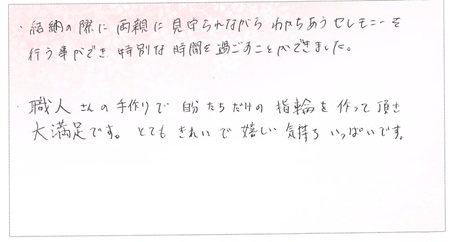 ・結納の際に両親に見守られながらわかちあうセレモニーを
行う事ができ特別な時間を過ごすことができました。
・職人さんの手作りで自分たちだけの指輪を作って頂き
大満足です。とてもきれいで嬉しい気持ちいっぱいです。